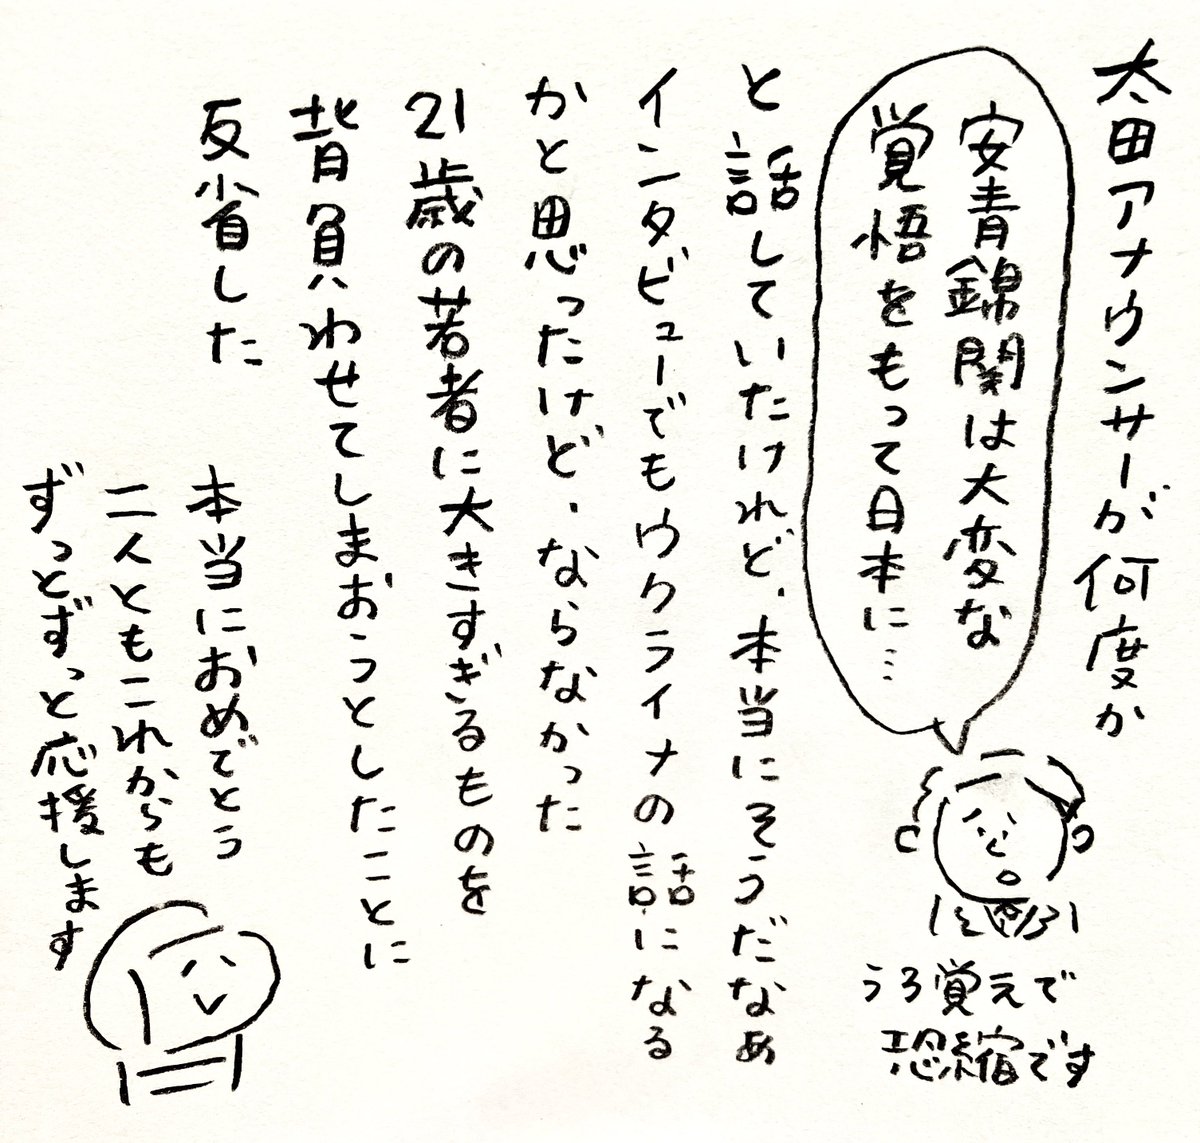 太田アナウンサーが何度か
安青錦関は大変な
覚悟をもって日本に…
うろ覚えで
恐縮です
と話していたけれど、本当にそうだなあ
インタビューでもウクライナの話になる
かと思ったけど、ならなかった
21歳の若者に大きすぎるものを
背負わせてしまおうとしたことに
反省した
本当におめでとう
二人ともこれからも
ずっとずっと応援します